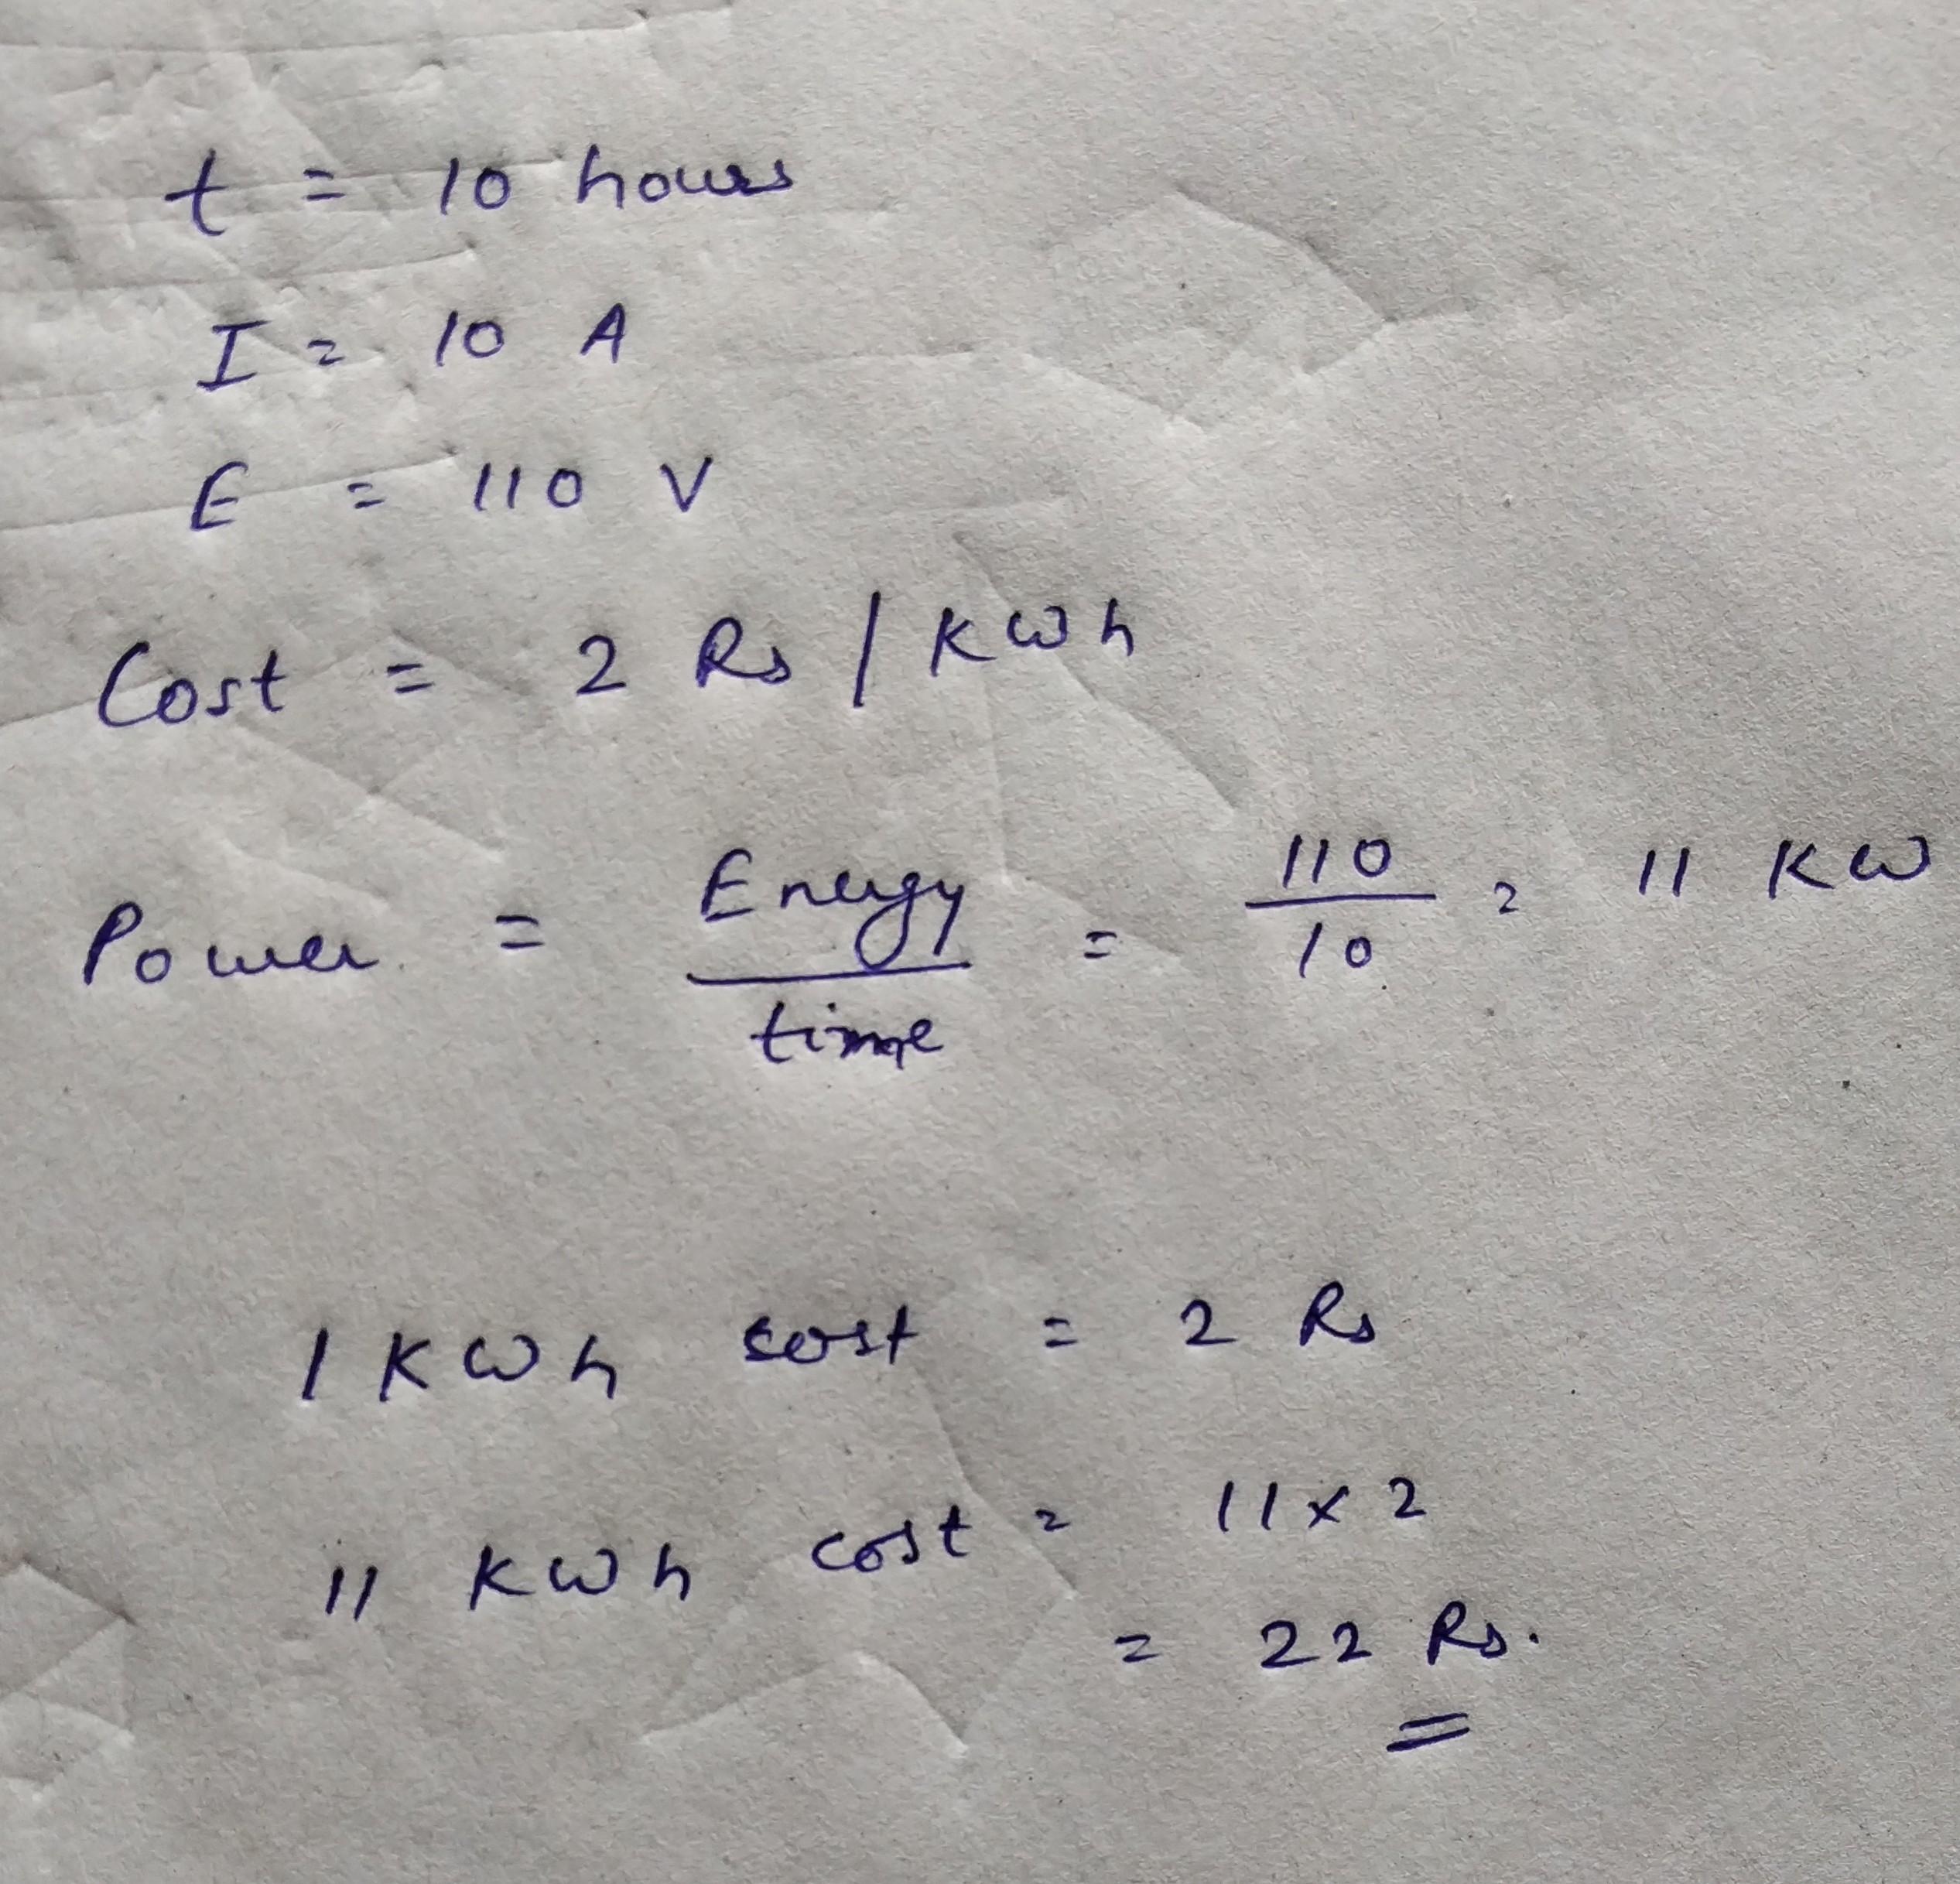 t = 10 hours
I = 10 A
E = 110 V
Cost = 2 Rs / KWh
Power = Energy / time = 110 / 10 = 11 KW
1 KWh cost = 2 Rs
11 KWh cost = 11 x 2
= 22 Rs.